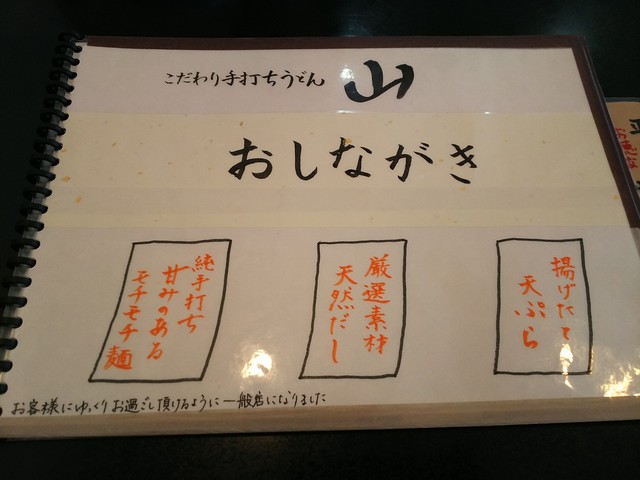 こだわり手打ちうどん 山
おしながき
揚げたて
天ぷら
厳選素材
天然だし
純手打ち
甘みのある
モチモチ麺
お客様にゆっくりお過ごし頂けるように一般店になりました